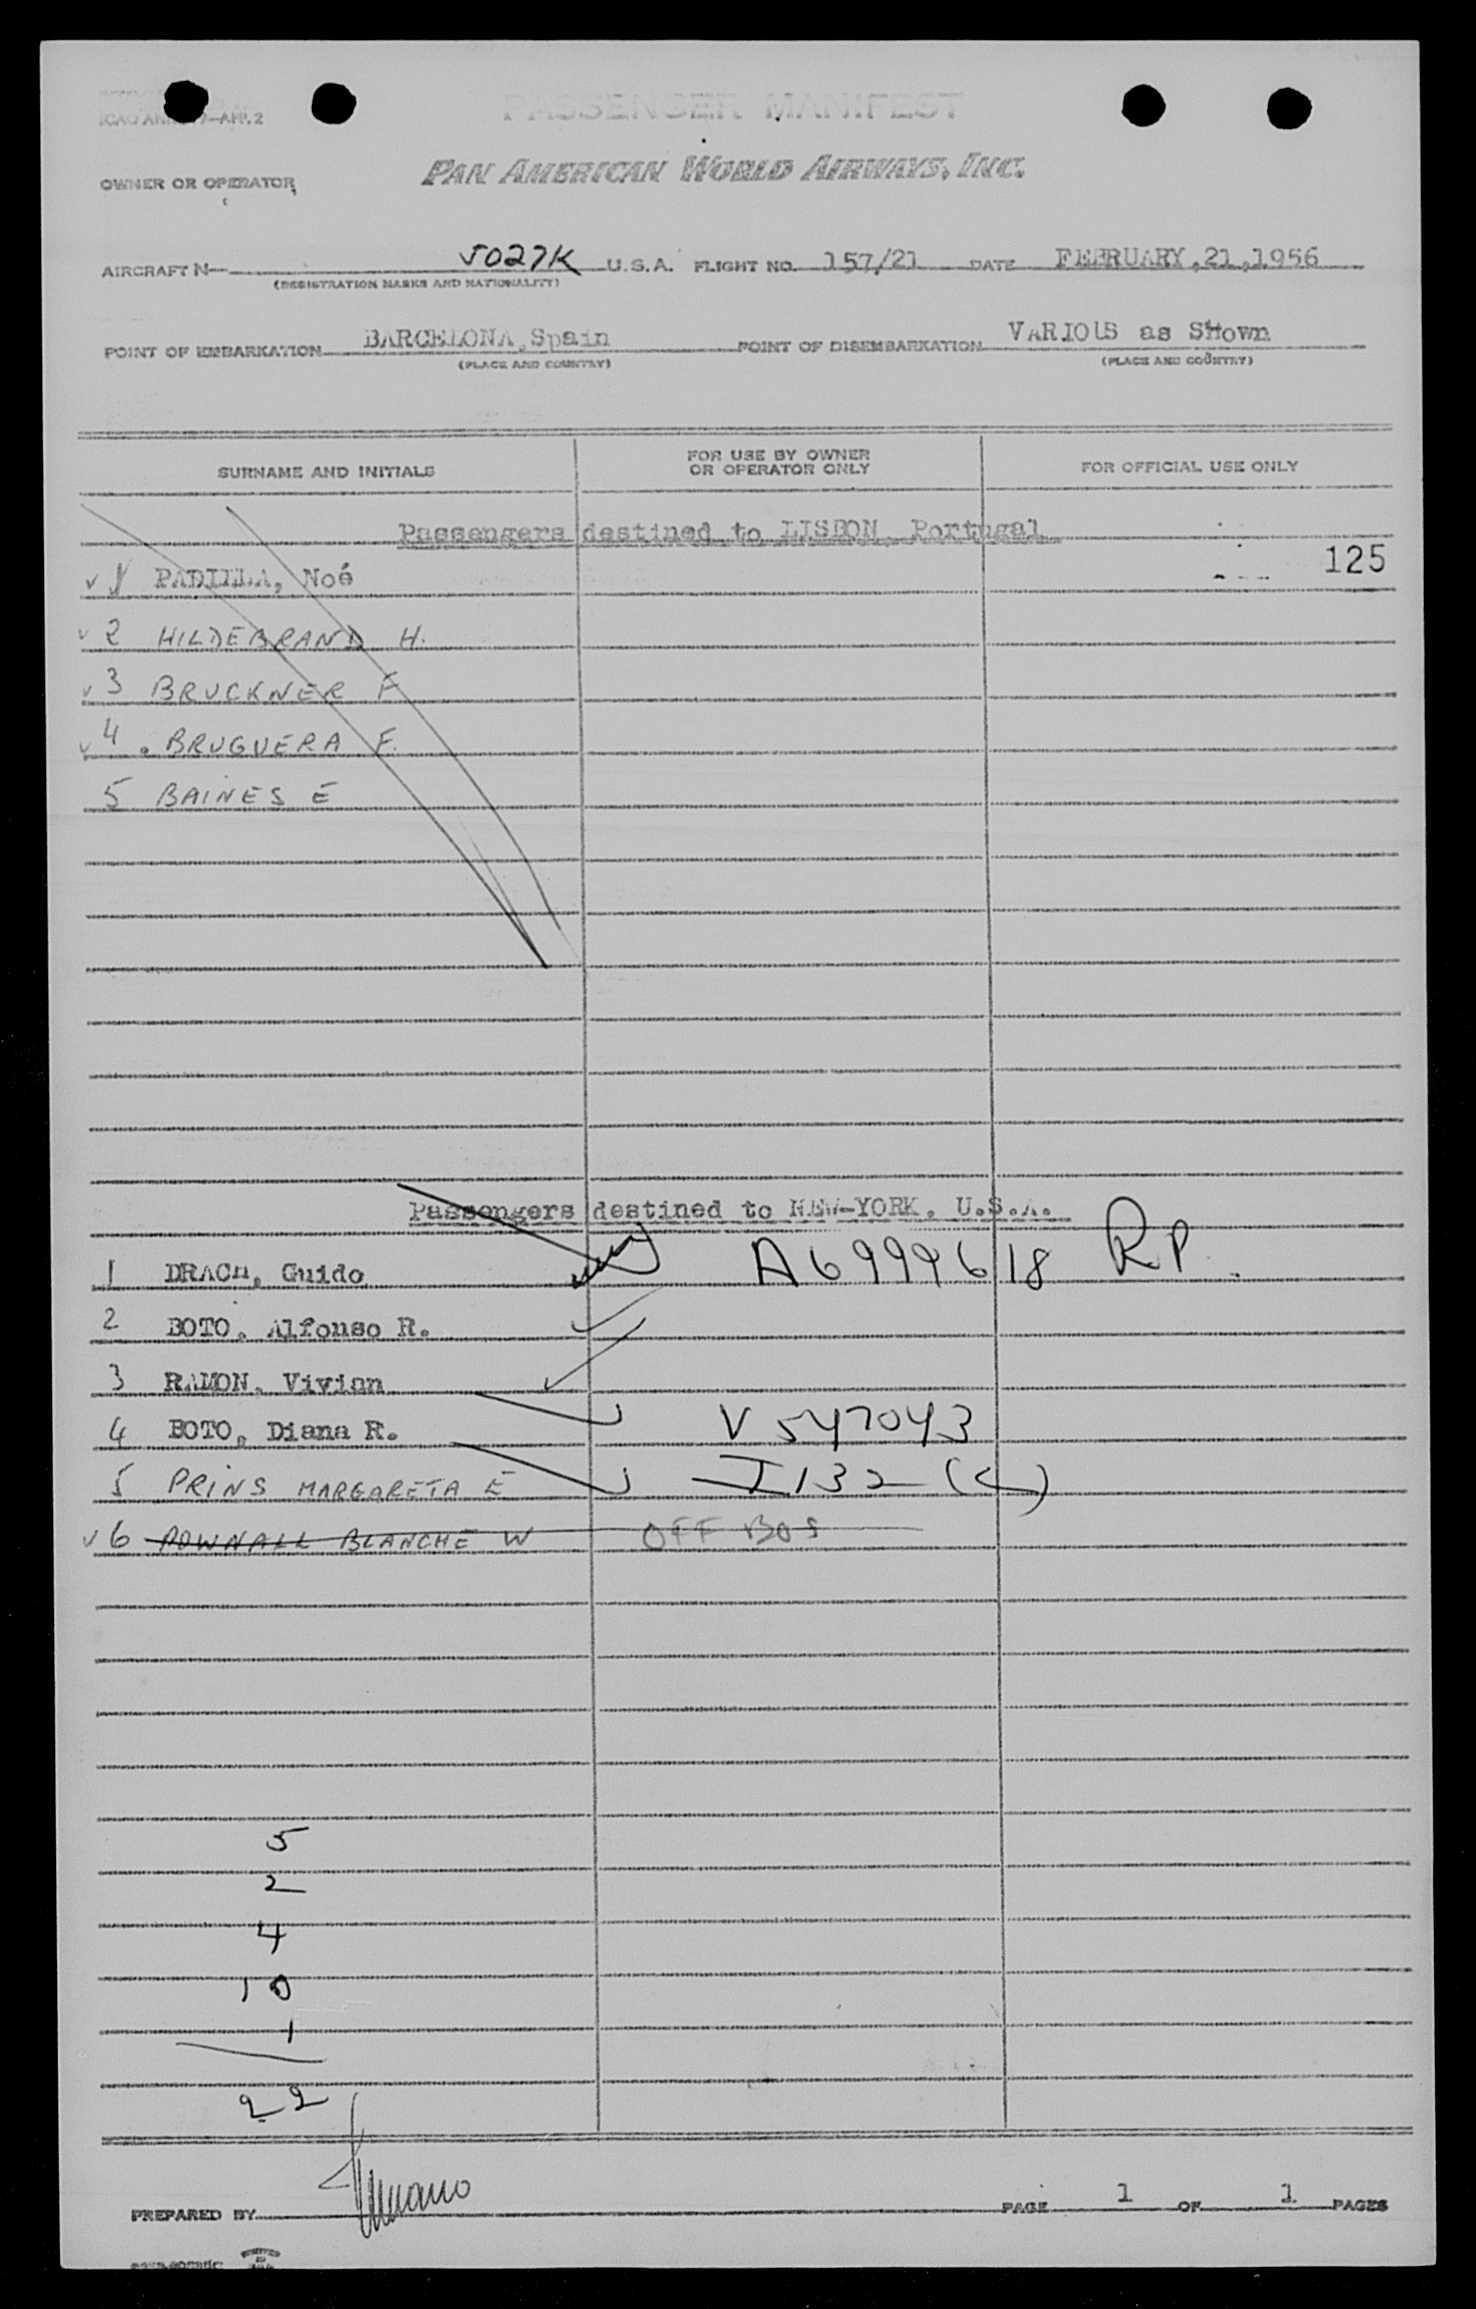 ICAO ANNEX 9—APP. 2
PASSENGER MANIFEST
OWNER OR OPERATOR
PAN AMERICAN WORLD AIRWAYS, INC.
AIRCRAFT N— 5027K U.S.A. FLIGHT NO. 157/21 DATE FEBRUARY,21,1956
(REGISTRATION MARKS AND NATIONALITY)
POINT OF EMBARKATION BARCELONA,Spain POINT OF DISEMBARKATION VARIOUS as SHown
(PLACE AND COUNTRY) (PLACE AND COUNTRY)
SURNAME AND INITIALS FOR USE BY OWNER OR OPERATOR ONLY FOR OFFICIAL USE ONLY
Passengers destined to LISBON, Portugal
1 PADILLA, Noé 125
2 HILDEBRAND H.
3 BRUCKNER F
4. BRUGUERA F.
5 BAINES E
Passengers destined to NEW-YORK. U.S.A.
1 DRACH, Guido A6999618 RP.
2 BOTO, Alfonso R.
3 RAMON, Vivian
4 BOTO, Diana R. V 547043
5 PRINS MARGARETA E I132 (C)
6 POWNALL BLANCHE W OFF BOS
5
2
4
10
1
22
PREPARED BY PAGE 1 OF 1 PAGES